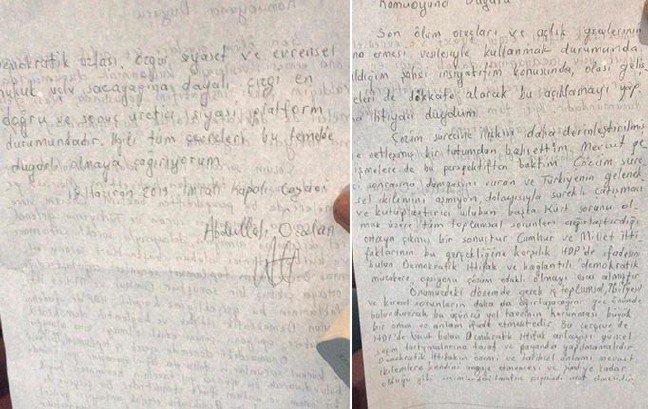 Kamuoyuna Duyuru
demokratik uzlaşı, özgür siyaset ve evrensel
hukuk dayalı çizgi en
doğru ve sonuç üretici siyasi platform
durumundadır. İlgili tüm çevreleri bu temelde
duyarlı olmaya çağırıyorum.
18 Haziran 2019 İmralı Kapalı Cezaevi
Abdullah Öcalan
Kamuoyuna Duyuru
Son ölüm oruçları ve açlık grevlerinin
sona ermesi vesilesiyle kullanmak durumunda
kaldığım şahsi insiyatifim konusunda, olası geliş-
meleri de dikkate alarak bu açıklamayı yap-
ma ihtiyacı duydum.
Çözüm sürecine ilişkin daha derinleştirilmiş
ve netleşmiş bir tutumdan bahsettim. Mevcut ge-
lişmelere de bu perspektiften baktım. Çözüm süre-
ci sonrasına damgasını vuran ve Türkiyenin gelenek-
sel ikilemini aşmıyan dolayısıyla sürekli çatışmacı
ve kutuplaştırıcı başta Kürt sorunu ol-
mak üzere tüm toplumsal sorunları ağırlaştırdığı
ortaya çıkmış bir sonuçtur. Cumhur ve Millet itti-
faklarının bu gerçekliğine karşılık HDP'de ifadesini
bulan Demokratik İttifak ve bağlantılı demokratik
müzakere opsiyonu çözüm odaklı olmayı esas almıştır.
Önümüzdeki dönemde gerek toplumsal, bölgesel
ve küresel sorunların daha da ağırlaşacağını göz önünde
bulundurarak bu üçüncü yol tavrının korunması büyük
bir önem ve anlam ifade etmektedir. Bu çerçevede
HDP'de vücut bulan Demokratik İttifak anlayışı güncel
seçim tartışmalarına taraf ve payanda yapılmamalıdır.
Demokratik İttifakın önemi ve tarihsel anlamı mevcut
ikilemlere kendini angaje etmemesi ve şimdiye kadar
olduğu gibi